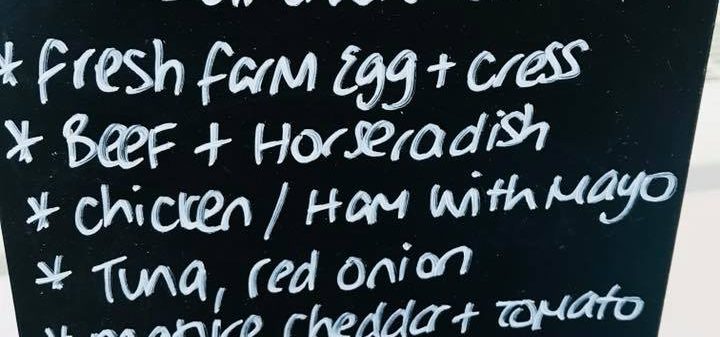 * Fresh farm Egg + cress
* Beef + Horseradish
* Chicken / Ham with Mayo
* Tuna, red onion
* mature cheddar + tomato